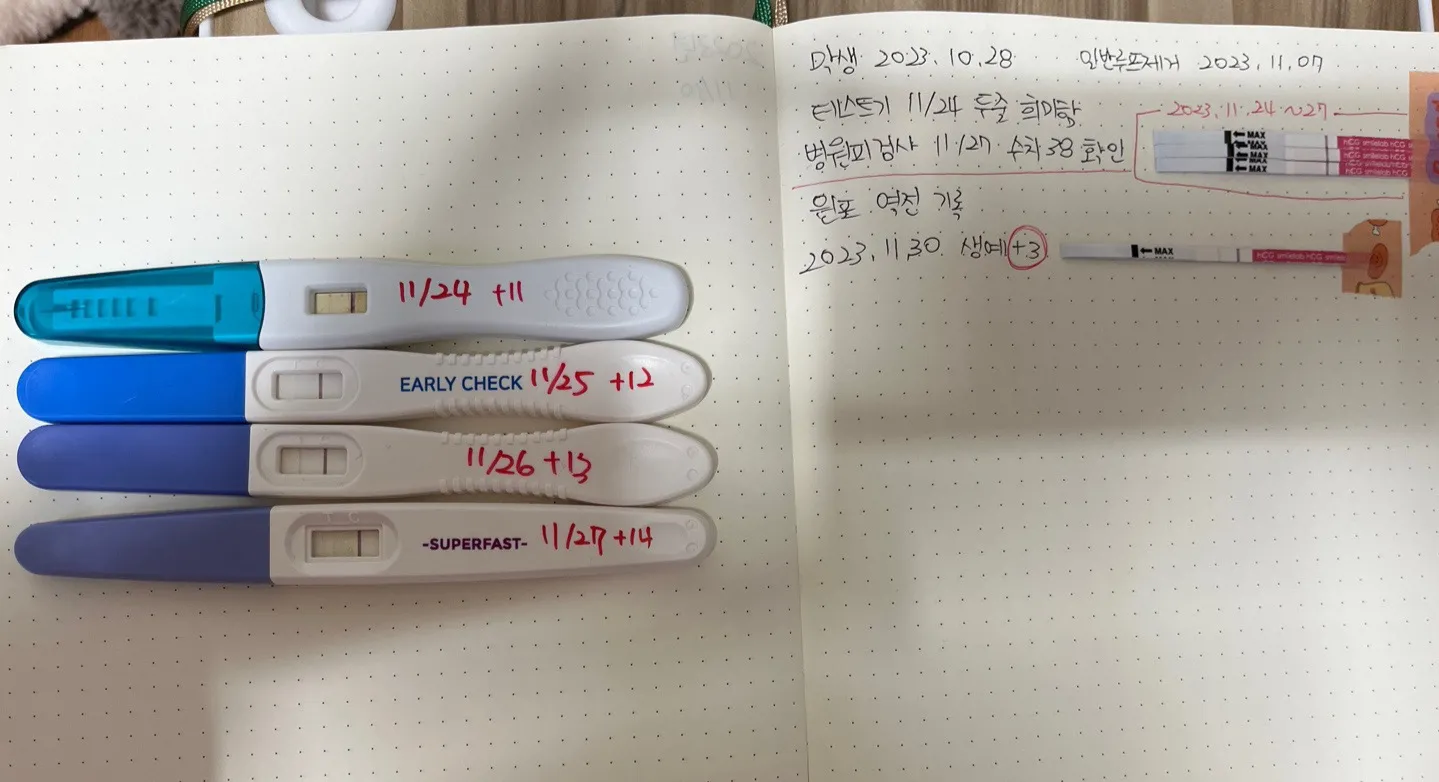 막생 2023.10.28 임반루프제거 2023.11.07
테스트기 11/24 두줄 희미함
2023.11.24~27
병원피검사 11/27 수치38 확인
← MAX
← MAX
← MAX
← MAX
hCG smilelab hCG
hCG smilelab hCG
hCG smilelab hCG
hCG smilelab hCG
원포 역전 기록
2023.11.30 생예 +3
← MAX
HCG smilelab HCG smilelab
11/24 +11
EARLY CHECK 11/25 +12
11/26 +13
T C
-SUPERFAST- 11/27 +14